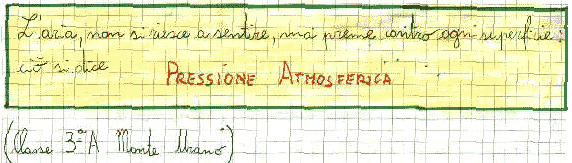 L'aria, non si riesce a sentire, ma preme contro ogni superficie:
ciò si dice PRESSIONE ATMOSFERICA
(Classe 3ª A Monte Urano)